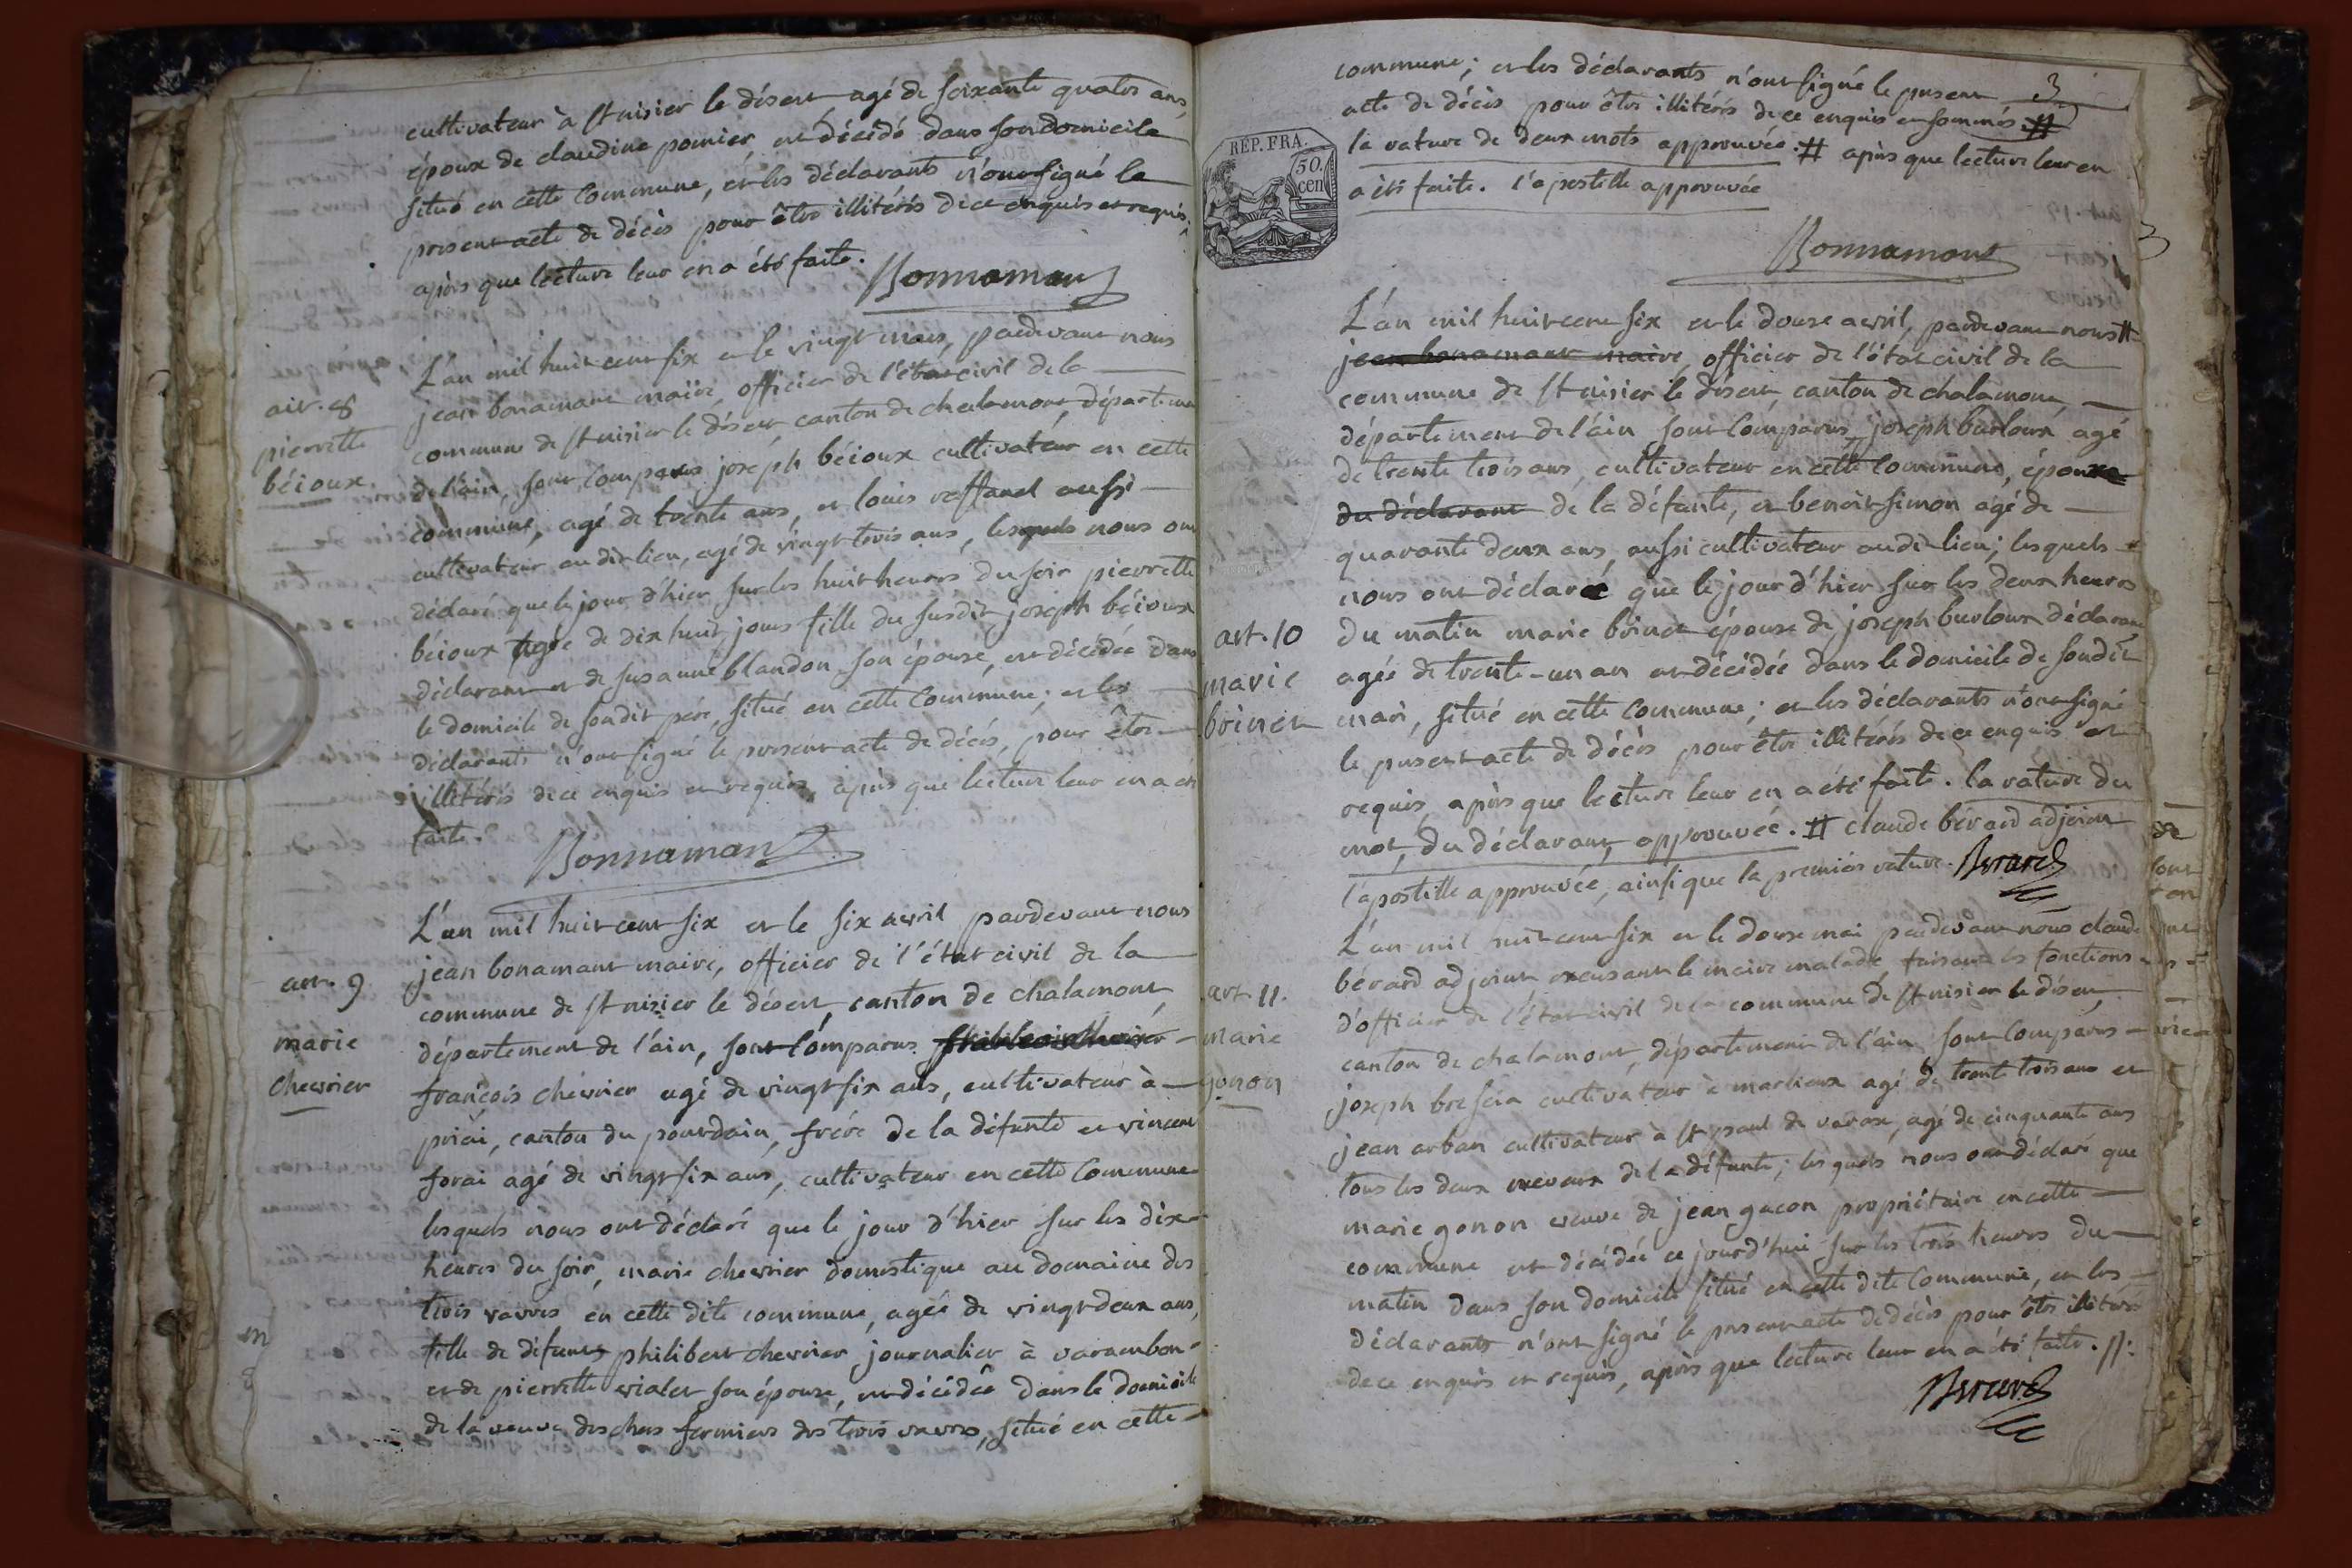 cultivateur à St nisier le désert agé de soixante quatre ans,
époux de claudine pomier, est décédé dans son domicile
situé en cette commune, et les déclarants n'ont signé le
present acte de décès pour être illitérés de ce enquis et requis,
après que lecture leur en a été faite.
Bonnamant
art. 8
pierrette
béioux.
L'an mil huit cent six et le vingt mars, pardevant nous
jean bonamant maire, officier de l'état civil de la
commune de St nisier le désert, canton de chalamont, département
de l'ain, sont comparus joseph béioux cultivateur en cette
commune, agé de trente ans, et louis raffanel aussi
cultivateur au dit lieu, agé de vingt trois ans, lesquels nous ont
déclaré que le jour d'hier sur les huit heures du soir pierrette
béioux agée de dix huit jours fille du susdit joseph béioux
déclarant et de susanne blandon son épouse, est décédée dans
le domicile de son dit père, situé en cette commune; et les
déclarants n'ont signé le present acte de décès, pour être
illitérés de ce enquis et requis, après que lecture leur en a été
faite.
Bonnamant
art. 9
marie
chevrier
L'an mil huit cent six et le six avril pardevant nous
jean bonamant maire, officier de l'état civil de la
commune de St nisier le désert, canton de chalamont
département de l'ain, sont comparus
françois chevrier agé de vingt six ans, cultivateur à
priai, canton du pont dain, frère de la défunte et vincent
forai agé de vingt six ans, cultivateur en cette commune
lesquels nous ont déclaré que le jour d'hier sur les dix
heures du soir, marie chevrier domestique au domaine des
trois vavres en cette dite commune, agée de vingt deux ans,
fille de défunts philibert chevrier journalier à varambon
et de pierrette vialet son épouse, est décédée dans le domicile
de la veuve deschans fermière des trois vavres, situé en cette
3
commune; et les déclarants n'ont signé le present
acte de décès pour être illitérés de ce enquis et sommés #
la rature de deux mots approuvée. # après que lecture leur en
a été faite. l'apostille approuvée
REP. FRA.
50.
cen
Bonnamant
L'an mil huit cent six et le douze avril, pardevant nous #
jean bonamant maire, officier de l'état civil de la
commune de St nisier le désert canton de chalamont
département de l'ain sont comparus joseph burloux agé
de trente trois ans, cultivateur en cette commune, époux
du déclarant de la défunte, et benoit simon agé de
quarante deux ans, aussi cultivateur au dit lieu; lesquels
nous ont déclaré que le jour d'hier sur les deux heures
art. 10
marie
brinet
du matin marie brinet épouse de joseph burloux déclarant
agée de trente-un an est décédée dans le domicile de son dit
mari, situé en cette commune; et les déclarants n'ont signé
le present acte de décès pour être illitérés de ce enquis et
requis, après que lecture leur en a été faite. la rature du
mot, du déclarant, approuvée. # claude bérard adjoint
l'apostille approuvée, ainsi que la première rature. Berard
art. 11.
marie
gonon
L'an mil huit cent six et le douze mai pardevant nous claude
bérard adjoint excusant le maire malade, faisant les fonctions
d'officier de l'état civil de la commune de St nisier le désert,
canton de chalamont, département de l'ain sont comparus
joseph brescia cultivateur à marlieux agé de trente trois ans et
jean arban cultivateur à St paul de varax, agé de cinquante ans
tous les deux neveux de la défunte; lesquels nous ont déclaré que
marie gonon veuve de jean gacon propriétaire en cette
commune est décédée ce jourd'hui sur les trois heures du
matin dans son domicile situé en cette dite commune, et les
déclarants n'ont signé le present acte de décès pour être illitérés
de ce enquis et requis, après que lecture leur en a été faite.
Berard